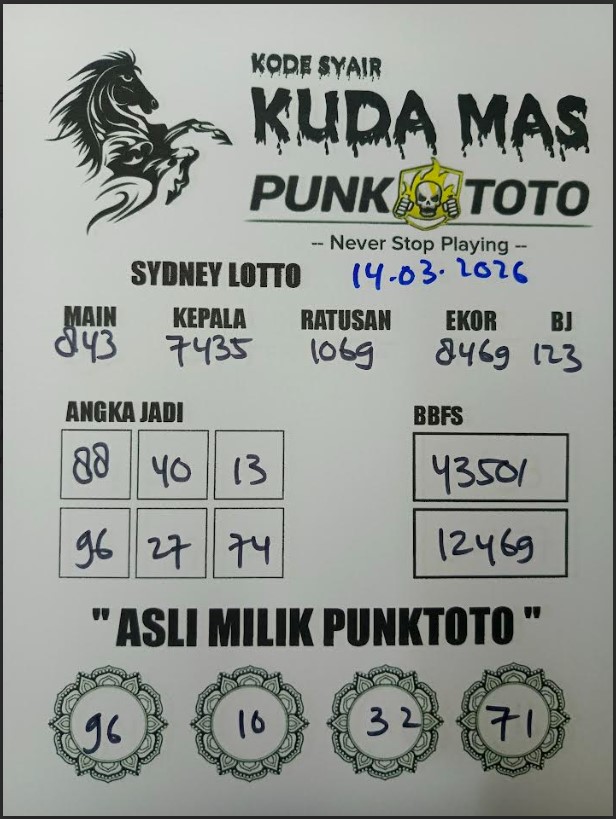 KODE SYAIR
KUDA MAS
PUNK TOTO
-- Never Stop Playing --
SYDNEY LOTTO 14.03.2026
MAIN KEPALA RATUSAN EKOR BJ
843 7435 1069 8469 123
ANGKA JADI BBFS
88 40 13 43501
96 27 74 12469
" ASLI MILIK PUNKTOTO "
96 10 32 71